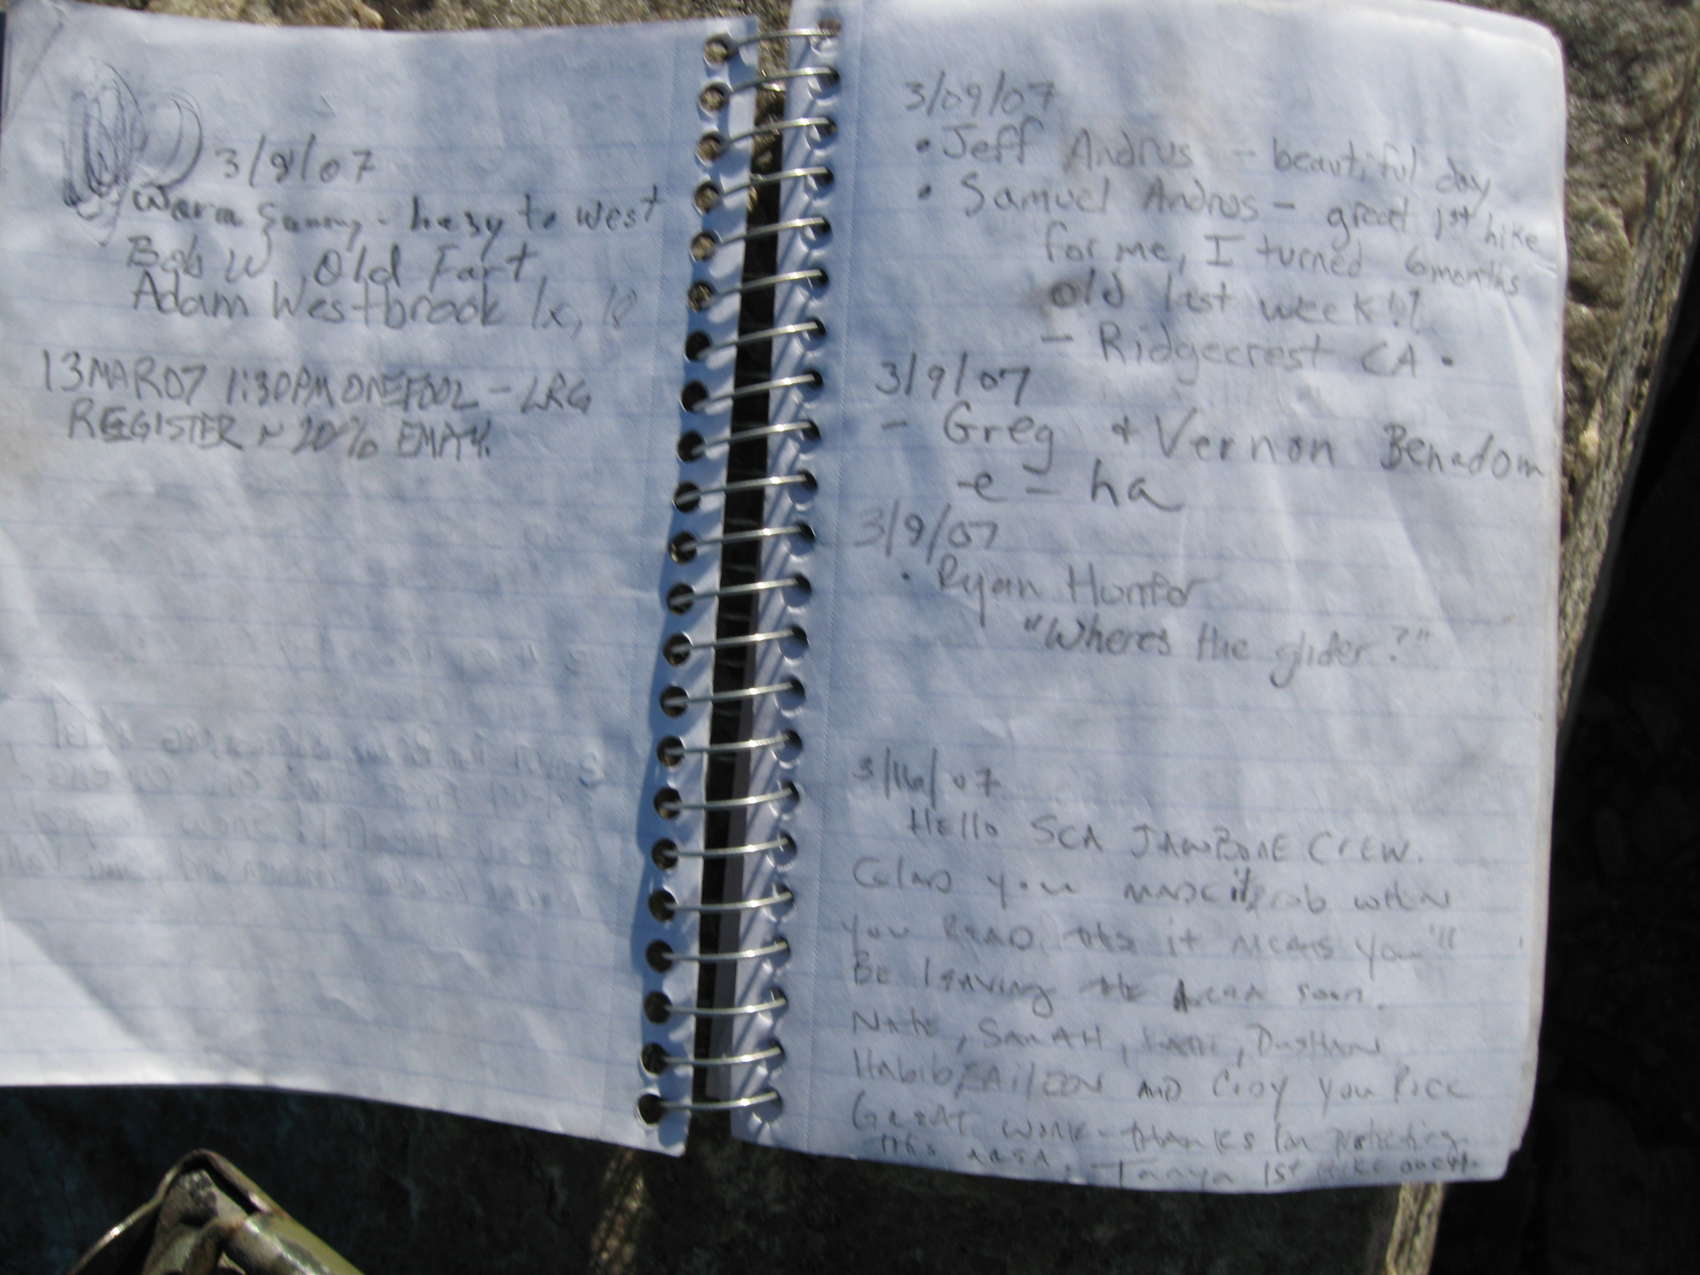 3/8/07
Warm Sunny - hazy to west
Bob W Old Fart
Adam Westbrook 1x, 18
13MAR07 1:30PM ONEFOOL - LRG
REGISTER ~ 20% EMPTY.
3/09/07
• Jeff Andrus - beautiful day
• Samuel Andrus - great 1st hike
for me, I turned 6 months
old last week!!
- Ridgecrest CA.
3/9/07
- Greg + Vernon Benadom
e - ha
3/9/07
• Ryan Hunter
"Where's the glider?"
3/16/07
Hello SCA JAWBONE CREW.
Glad you made it, when
you READ this it means you'll
Be leaving the Area soon.
Nate, SARAH, Dustin
Habib, and Croy You Rock
GREAT WORK - thanks for protecting
this AREA. Tanya 1st hike